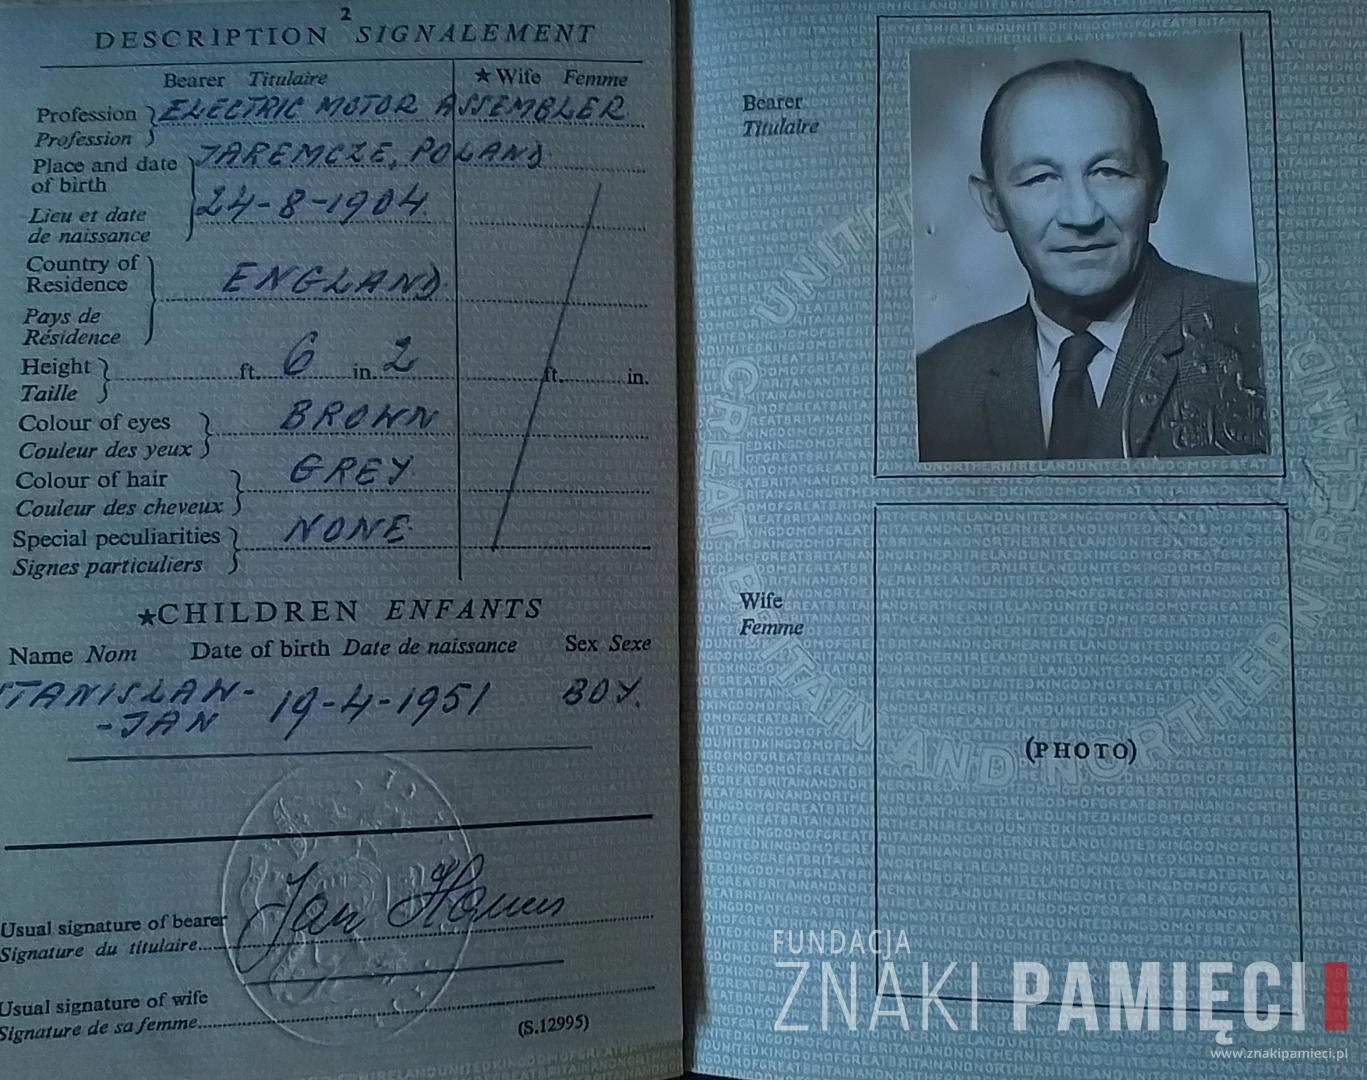 2
DESCRIPTION SIGNALEMENT
Bearer Titulaire ★Wife Femme
Profession ELECTRIC MOTOR ASSEMBLER
Profession
Place and date JAREMCZE, POLAND.
of birth
24-8-1904.
Lieu et date
de naissance
Country of
Residence ENGLAND.
Pays de
Résidence
Height ft. 6 in. 2 ft. in.
Taille
Colour of eyes BROWN
Couleur des yeux
Colour of hair GREY.
Couleur des cheveux
Special peculiarities NONE.
Signes particuliers
★CHILDREN ENFANTS
Name Nom Date of birth Date de naissance Sex Sexe
STANISLAW- 19-4-1951 BOY.
-JAN
Usual signature of bearer Jan
Signature du titulaire
Usual signature of wife
Signature de sa femme
(S.12995)
Bearer
Titulaire
UNITED KINGDOM OF GREAT BRITAIN AND NORTHERN IRELAND
Wife
Femme
(PHOTO)
FUNDACJA
ZNAKI PAMIĘCI
www.znakipamieci.pl